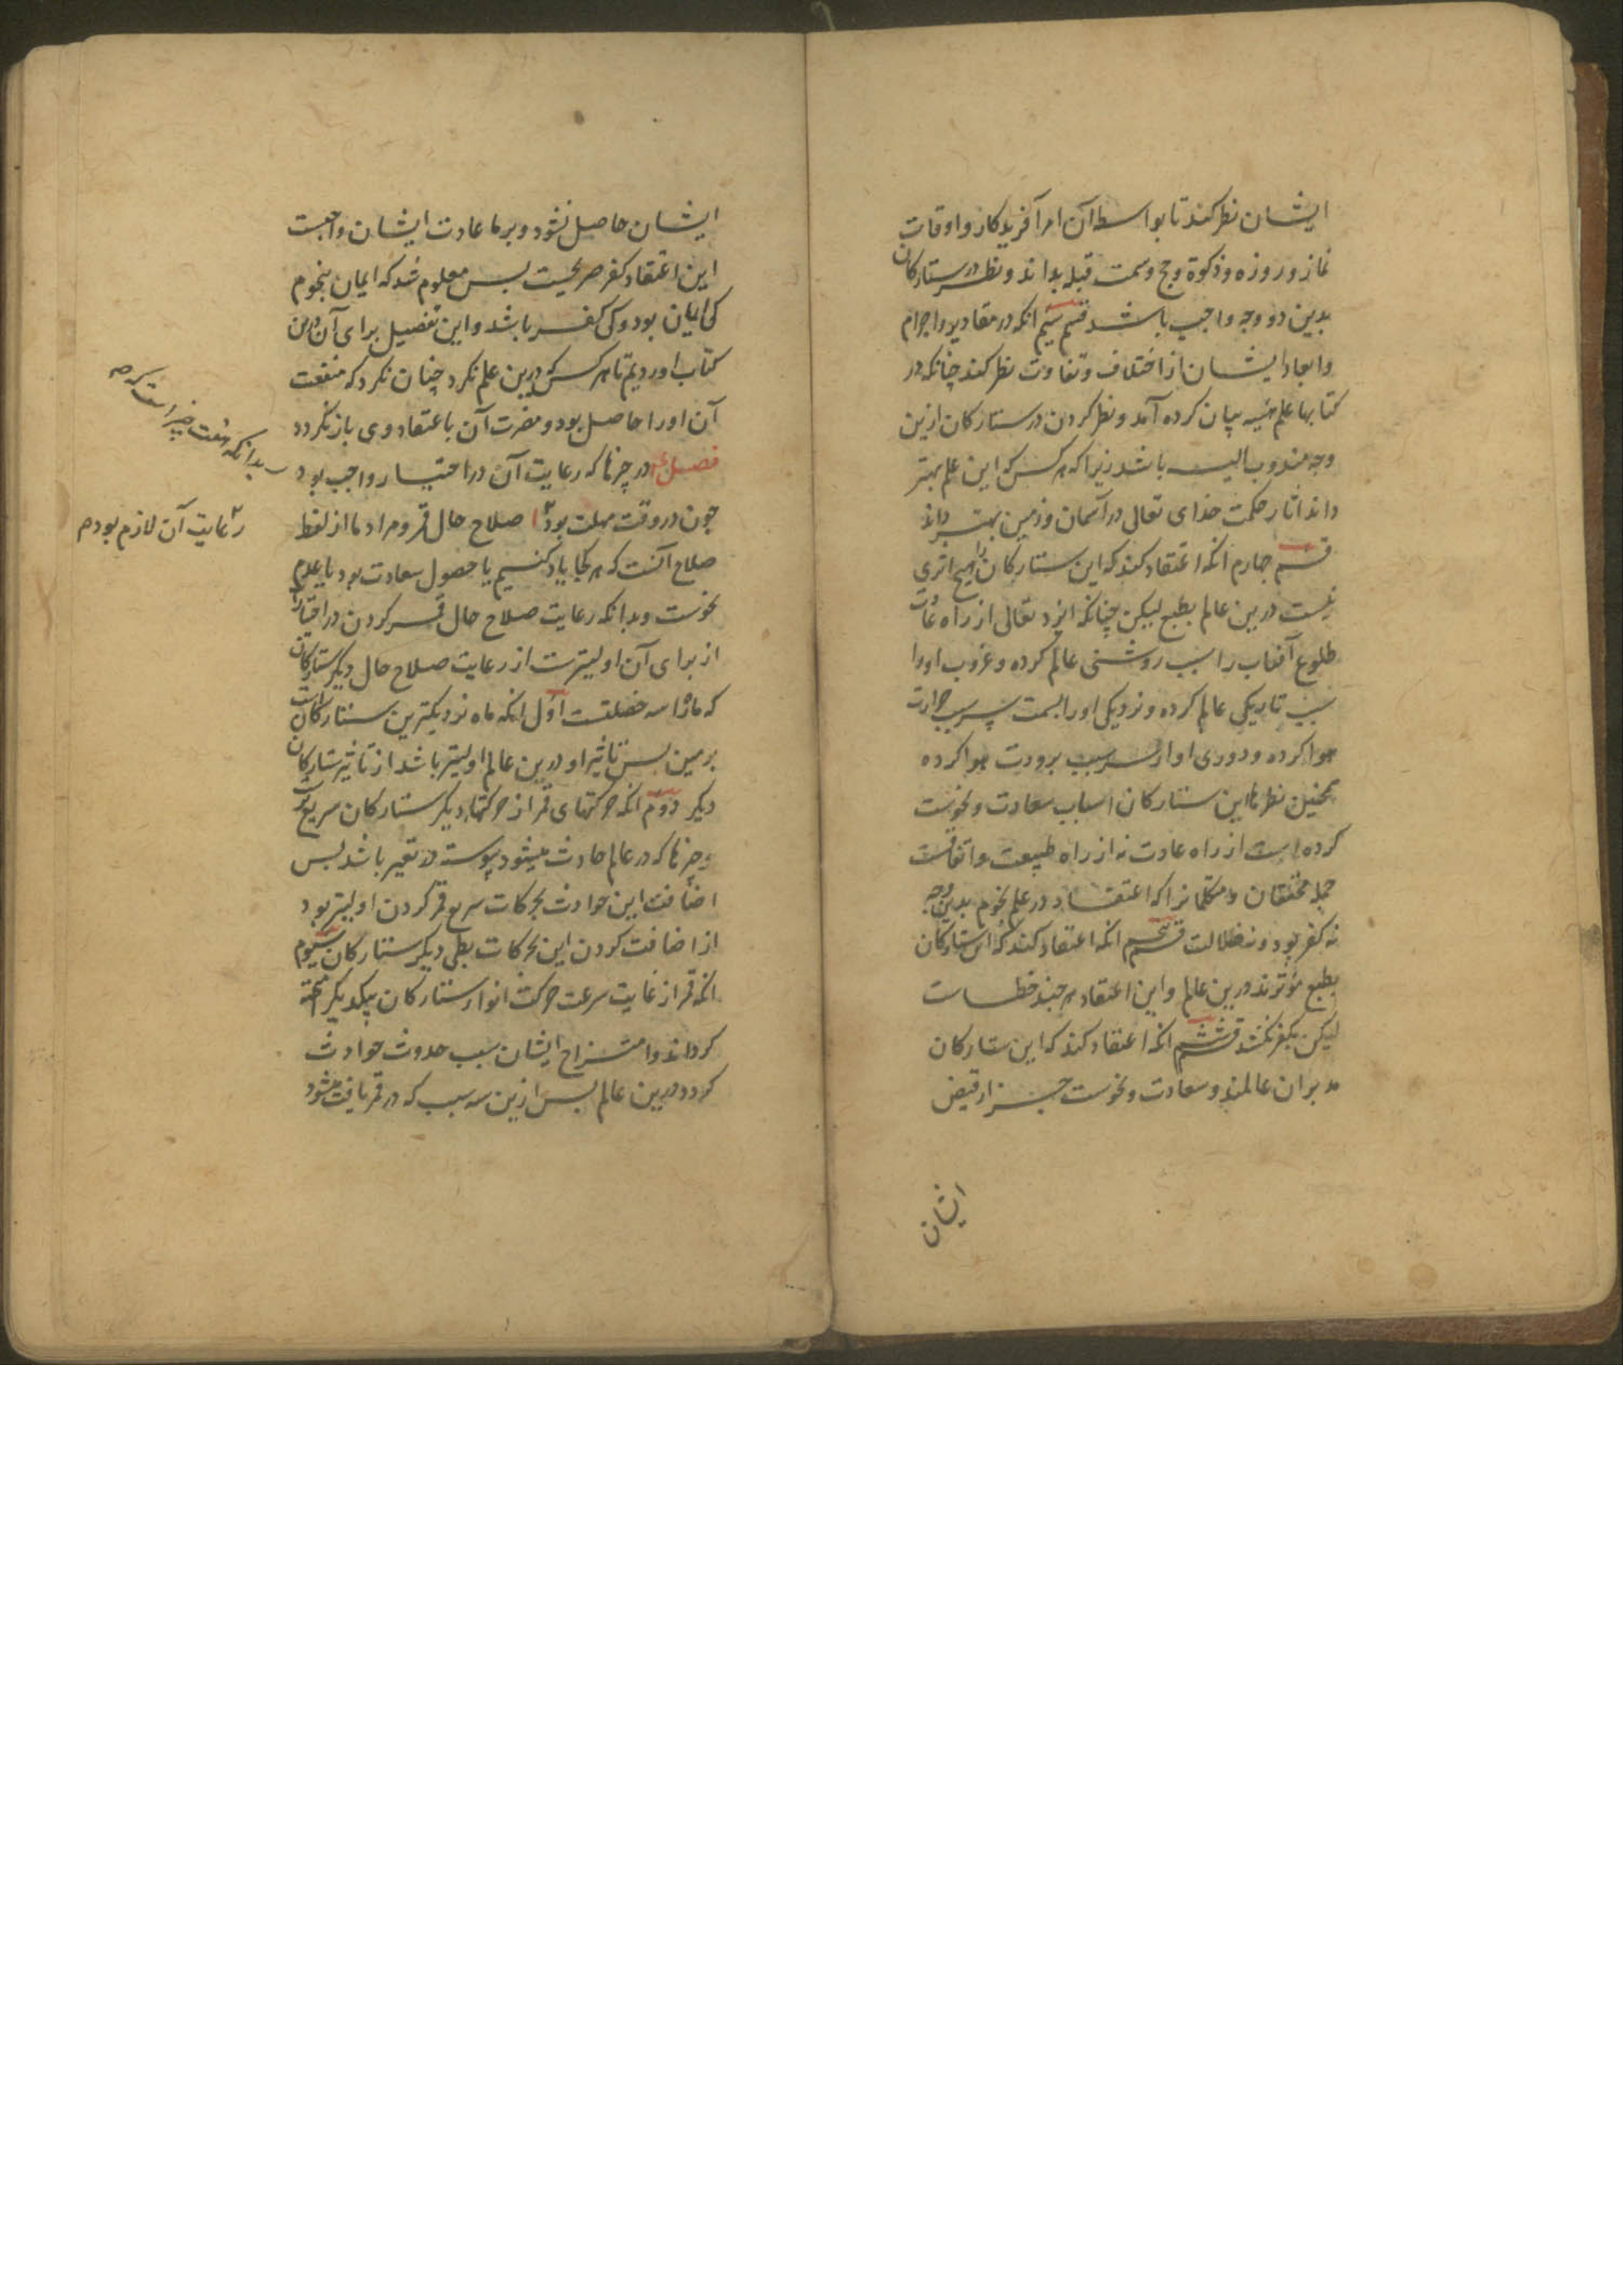 ایشان نظر کند تا بواسطه آن امر آفریدکار و اوقات
نماز و روزه و زکوة و حج و سمت قبله بداند و نظر در ستارکان
بدین دو وجه واجب باشد قسم سیم انکه در مقادیر و اجرام
و ابعاد ایشان از اختلاف و تفاوت نظر کند چنانکه در
کتابها علم هیئه بیان کرده آمد و نظر کردن در ستارکان ازین
وجه مندوب الیه باشد زیرا که هر کس که این علم بهتر
داند اثار حکمت خدای تعالی در آسمان و زمین بهتر داند
قسم چهارم انکه اعتقاد کند که این ستارکان را هیچ اثری
نیست درین عالم بطبع لیکن چنانکه ایزد تعالی از راه عادت
طلوع آفتاب را سبب روشنی عالم کرده و غروب او را
سبب تاریکی عالم کرده و نزدیکی او را بسمت سر سبب حرارت
هوا کرده و دوری او از سر سبب برودت هوا کرده
همچنین نظرها این ستارکان اسباب سعادت و نحوست
کرده است از راه عادت نه از راه طبیعت و اتفاقست
جمله محققان و متکلمانرا که اعتقاد در علم نجوم بدین وجه
نه کفر بود و نه ضلالت قسم پنجم انکه اعتقاد کند که این ستارکان
بطبع مؤثرند درین عالم و این اعتقاد هر چند خطاست
لیکن بکفر نکشد قسم ششم انکه اعتقاد کند که این ستارکان
مدبران عالمند و سعادت و نحوست جز از فیض
ایشان
ایشان حاصل نشود و بر ما عادت ایشان واجبست
این اعتقاد کفر صریحست بس معلوم شد که ایمان بنجوم
کی ایمان بود و کی کفر باشد و این تفصیل برای آن درین
کتاب اوردیم تا هر کس که درین علم نکرد چنان نکرد که منفعت
آن او را حاصل بود و مضرت آن باعتقاد وی باز نکردد
فصل در چیزها که رعایت آن در اختیار واجب بود
بدانکه هفت چیز است که
رعایت آن لازم بود
چون در وقت مهلت بود ا صلاح حال قمر و مراد ما از لفظ
صلاح آنست که هر کجا یاد کنیم یا حصول سعادت بود یا عدم
نحوست و بدانکه رعایت صلاح حال قمر کردن در اختیارها
از برای آن اولیترست از رعایت صلاح حال دیکر ستارکان
که ماه را سه خصلتست اول انکه ماه نزدیکترین ستارکانست
بزمین بس تاثیر او درین عالم اولیتر باشد از تاثیر ستارکان
دیکر دوم انکه حرکتهای قمر از حرکتها دیکر ستارکان سریع ترست
و چیزها که در عالم حادث میشود پیوسته در تغیر باشد بس
اضافت این حوادث بحرکات سریع قمر کردن اولیتر بود
از اضافت کردن این بحرکات بطی دیکر ستارکان سیوم
انکه قمر از غایت سرعت حرکت انوار ستارکان بیکدیکر آمیخته
کرداند و امتزاج ایشان سبب حدوث حوادث
کردد درین عالم بس ازین سه سبب که در قمر یافت میشود